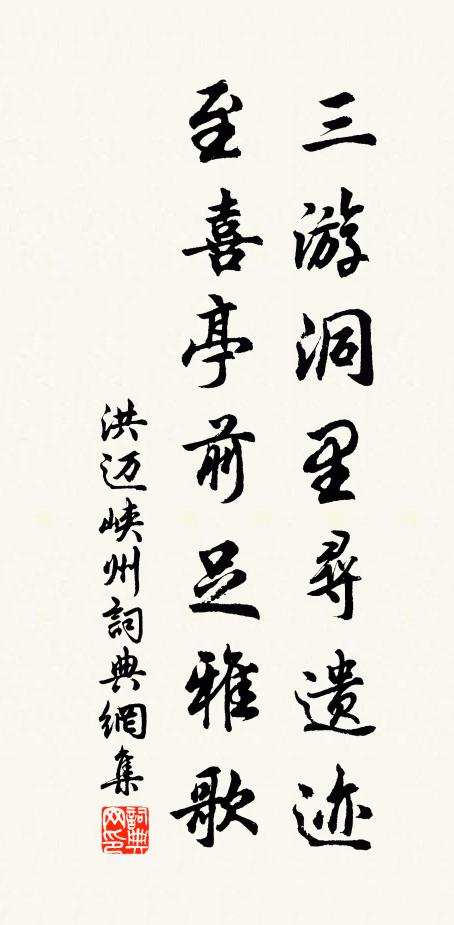 三游洞里尋遗迹
至喜亭前足雅歌
洪迈峡州詞典網集
詞典网印